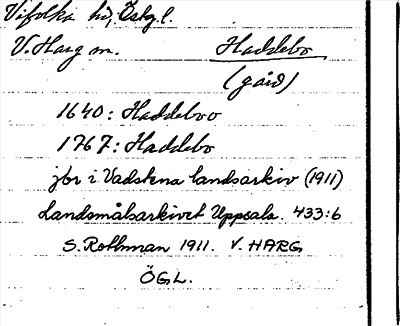 Vifolka hd, Östg.l.
V. Harg sn. Haddebo
(gård)
1640: Haddeboo
1767: Haddebo
jbr i Vadstena landsarkiv (1911)
Landsmålsarkivet Uppsala. 433:6
S. Rothman 1911. V. HARG
ÖGL.